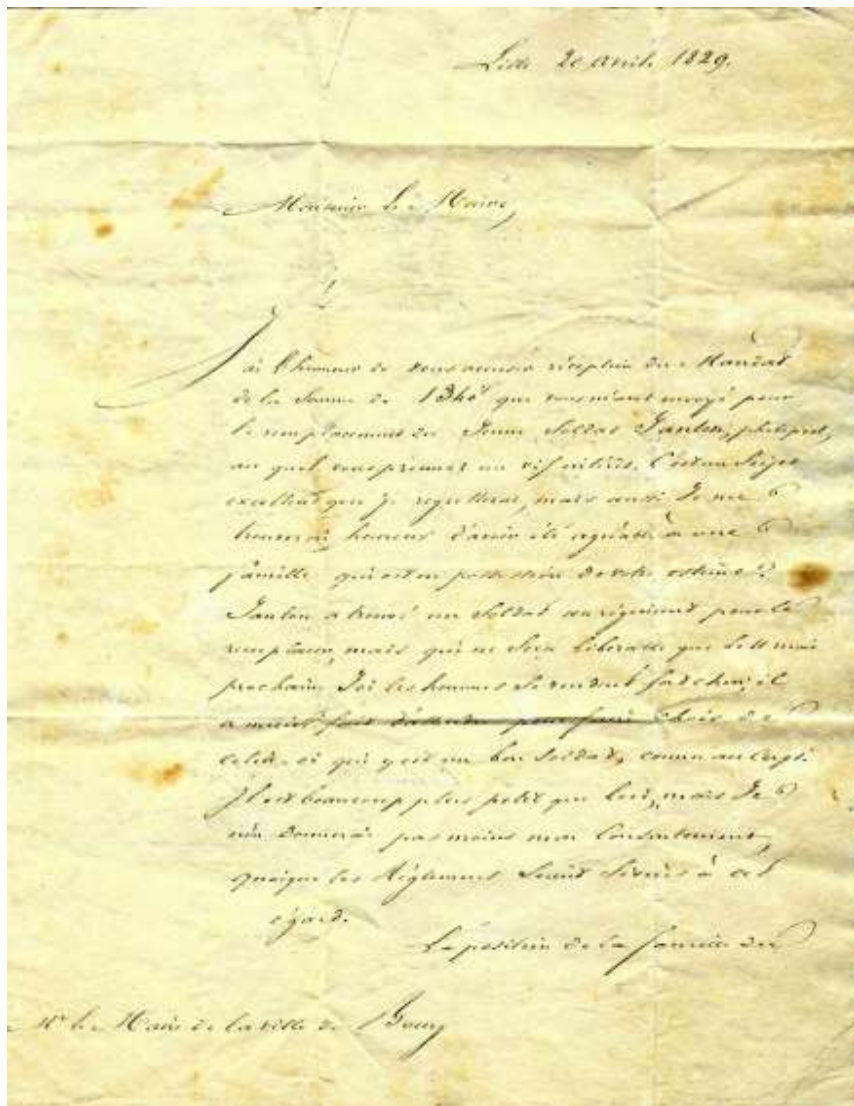 Lille 20 avril 1829.
Monsieur le Maire,
J'ai l'honneur de vous accuser réception du Mandat
de la Somme de que vous m'avez envoyé pour
le remplacement du Jeune Soldat Janton,
au quel vous prenez un vif intérêt. C'est un Sujet
excellent que je regretterai, mais aussi Je me
trouverai heureux d'avoir été agréable à une
famille qui est en possession de votre estime.
Janton a trouvé un Soldat au régiment pour le
remplacer, mais qui ne Sera libérable que mai
prochain. Ici les hommes Se vendent fort cher; il
a mieux fait d'attendre pour faire choix de
celui-ci qui est un bon Soldat, connu au Corps.
Il est beaucoup plus petit que lui, mais Je
n'en donnerai pas moins mon Consentement,
quoique les Règlements Soient Sévères à cet
égard.
La position de la famille du
Mr le Maire de la ville de Bourg